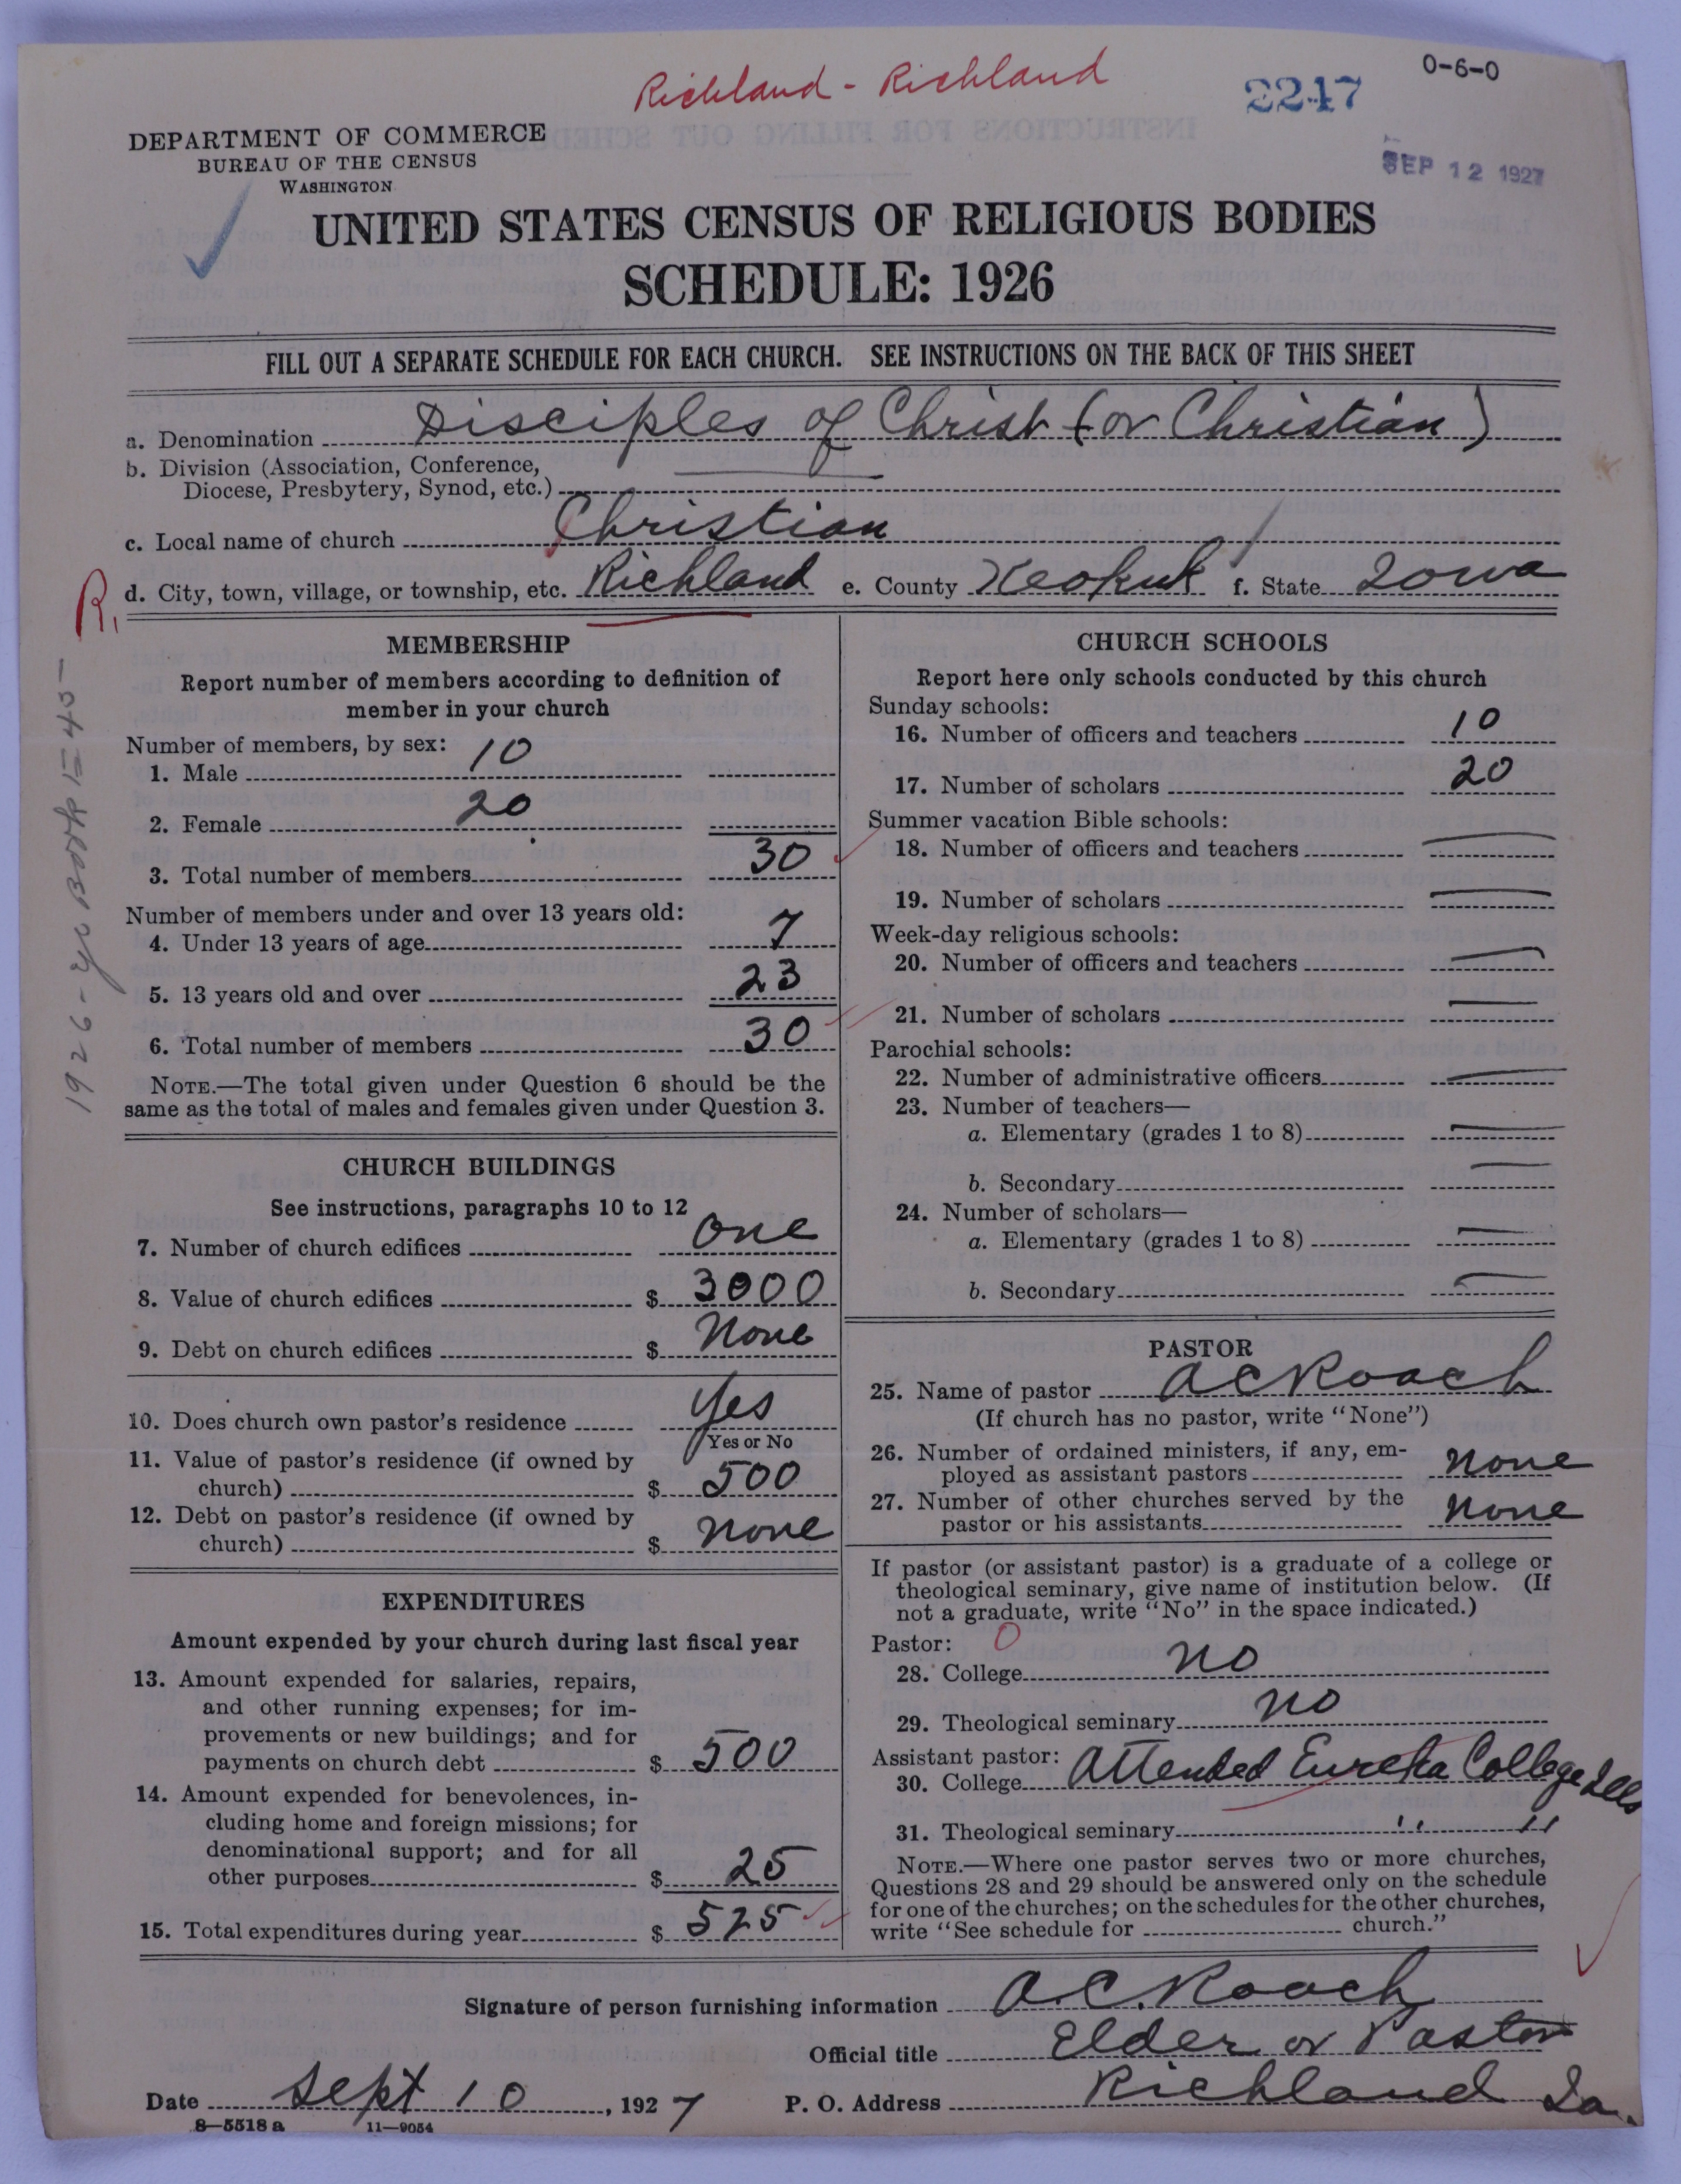 Richland - Richland
2247
0-6-0
SEP 12 1927
DEPARTMENT OF COMMERCE
BUREAU OF THE CENSUS
WASHINGTON
UNITED STATES CENSUS OF RELIGIOUS BODIES
SCHEDULE: 1926
FILL OUT A SEPARATE SCHEDULE FOR EACH CHURCH. SEE INSTRUCTIONS ON THE BACK OF THIS SHEET
a. Denomination Disciples of Christ (or Christian)
b. Division (Association, Conference,
Diocese, Presbytery, Synod, etc.)
c. Local name of church Christian
R. d. City, town, village, or township, etc. Richland e. County Keokuk f. State Iowa
1926 - yr Book 1 = 45-
MEMBERSHIP
Report number of members according to definition of
member in your church
Number of members, by sex:
1. Male 10
2. Female 20
3. Total number of members 30
Number of members under and over 13 years old:
4. Under 13 years of age 7
5. 13 years old and over 23
6. Total number of members 30
NOTE.—The total given under Question 6 should be the
same as the total of males and females given under Question 3.
CHURCH BUILDINGS
See instructions, paragraphs 10 to 12
7. Number of church edifices one
8. Value of church edifices $ 3000
9. Debt on church edifices $ None
10. Does church own pastor's residence Yes
Yes or No
11. Value of pastor's residence (if owned by
church) $ 500
12. Debt on pastor's residence (if owned by
church) $ none
EXPENDITURES
Amount expended by your church during last fiscal year
13. Amount expended for salaries, repairs,
and other running expenses; for im-
provements or new buildings; and for
payments on church debt $ 500
14. Amount expended for benevolences, in-
cluding home and foreign missions; for
denominational support; and for all
other purposes $ 25
15. Total expenditures during year $ 525
CHURCH SCHOOLS
Report here only schools conducted by this church
Sunday schools:
16. Number of officers and teachers 10
17. Number of scholars 20
Summer vacation Bible schools:
18. Number of officers and teachers
19. Number of scholars
Week-day religious schools:
20. Number of officers and teachers
21. Number of scholars
Parochial schools:
22. Number of administrative officers
23. Number of teachers—
a. Elementary (grades 1 to 8)
b. Secondary
24. Number of scholars—
a. Elementary (grades 1 to 8)
b. Secondary
PASTOR
25. Name of pastor A C Roach
(If church has no pastor, write "None")
26. Number of ordained ministers, if any, em-
ployed as assistant pastors none
27. Number of other churches served by the
pastor or his assistants none
If pastor (or assistant pastor) is a graduate of a college or
theological seminary, give name of institution below. (If
not a graduate, write "No" in the space indicated.)
Pastor: 0
28. College no
29. Theological seminary no
Assistant pastor:
30. College Attended Eureka College Ills
31. Theological seminary " "
NOTE.—Where one pastor serves two or more churches,
Questions 28 and 29 should be answered only on the schedule
for one of the churches; on the schedules for the other churches,
write "See schedule for church."
Signature of person furnishing information A. C. Roach
Official title Elder or Pastor
Date Sept 10, 1927 P. O. Address Richland Ia.
8—5518 a 11—9054